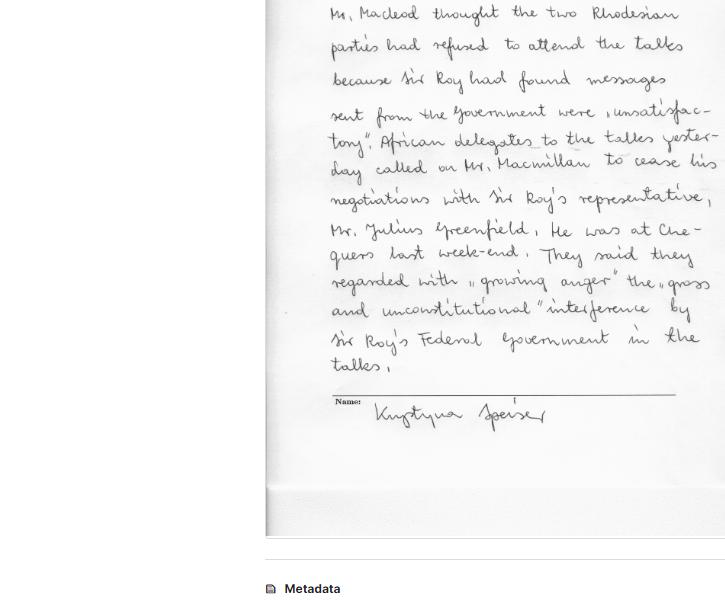 Mr. Macleod thought the two Rhodesian
parties had refused to attend the talks
because Sir Roy had found messages
sent from the Government were „unsatisfac-
tory". African delegates to the talks yester-
day called on Mr. Macmillan to cease his
negotiations with Sir Roy's representative,
Mr. Julius Greenfield. He was at Che-
quers last week-end. They said they
regarded with „growing anger" the „gross
and unconstitutional" interference by
Sir Roy's Federal Government in the
talks.
Name:
Krystyna Speiser
Metadata